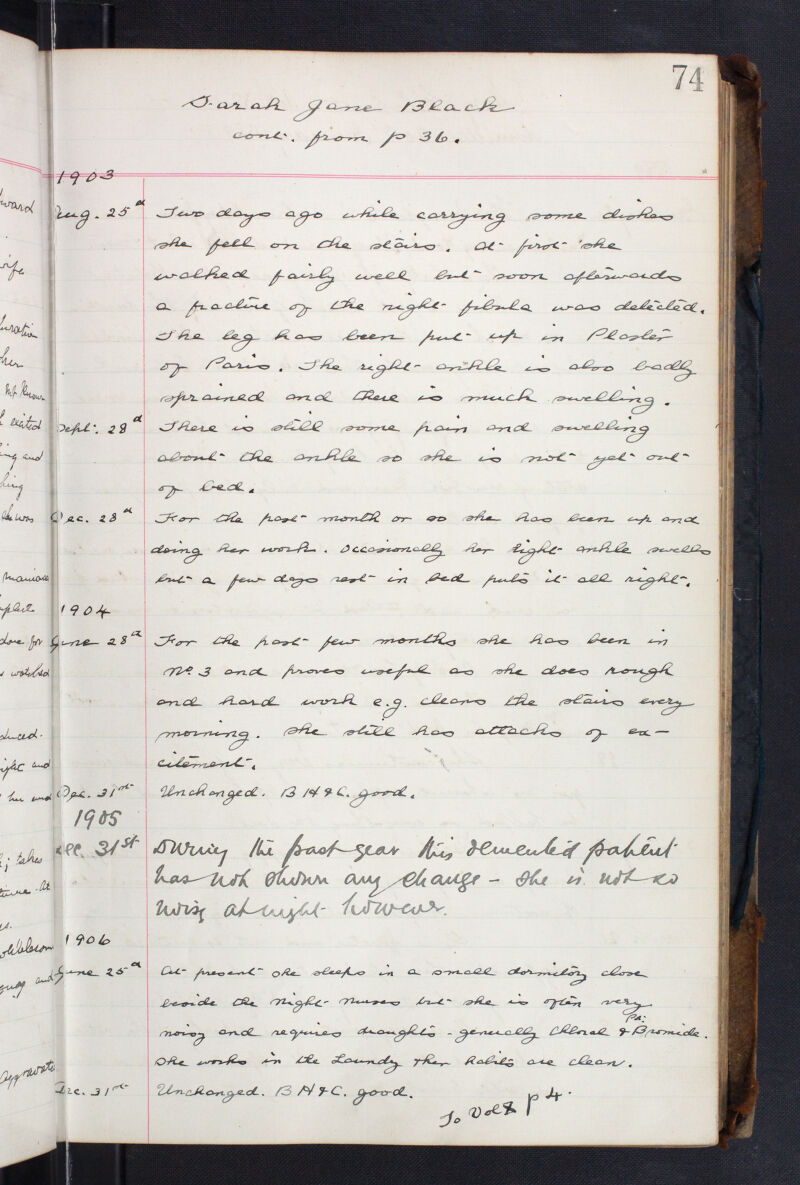 74
Sarah Jane Black
cont. from p 36.
1903
Aug. 25th Two days ago while carrying some dishes
she fell on the stairs. At first she
walked fairly well but soon afterwards
a fracture of the right fibula was detected.
The leg has been put up in Plaster
of Paris. The right ankle is also badly
sprained and there is much swelling.
Sept. 28th There is still some pain and swelling
about the ankle so she is not yet out
of bed.
Dec. 28th For the past month or so she has been up and
doing her work. Occasionally her right ankle swells
but a few days rest in bed puts it all right.
1904
June 28th For the past few months she has been in
No. 3 and proves useful as she does rough
and hard work e.g. cleans the stairs every
morning. She still has attacks of ex-
citement.
Dec. 31st Unchanged. B H & C. good.
1905
Dec. 31st During the past year this demented patient
has not shown any change - she is not so
noisy at night however.
1906
June 25th At present she sleeps in a small dormitory close
beside the night nurses but she is often very
noisy and requires draughts - generally Chloral & Pot: Bromide.
She works in the Laundry & her habits are clean.
Dec. 31st Unchanged. B H & C. good.
To Vol 8 p 4.